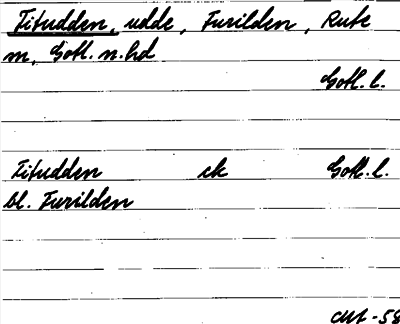 Titudden, udde, Furilden, Rute
m, Gotl. n. hd
Gotl. l.
Titudden ek Gotl. l.
bl. Furilden
-58